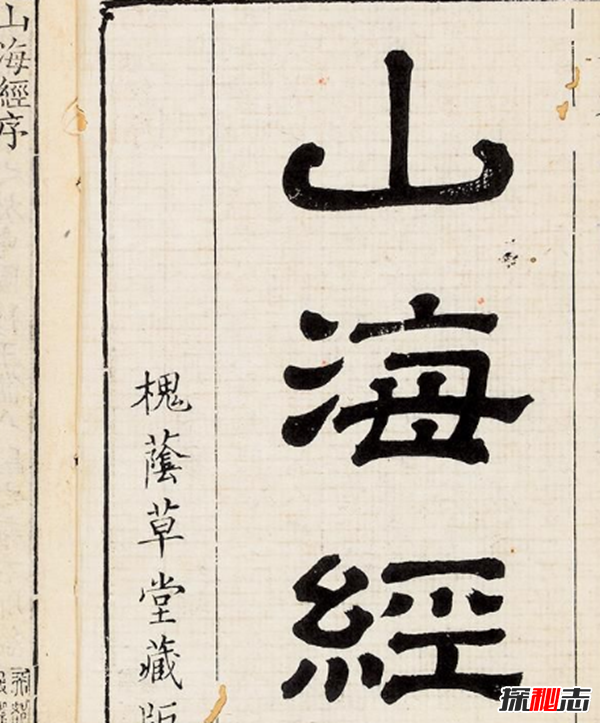 山海經
槐蔭草堂藏版
山海經序
探秘志